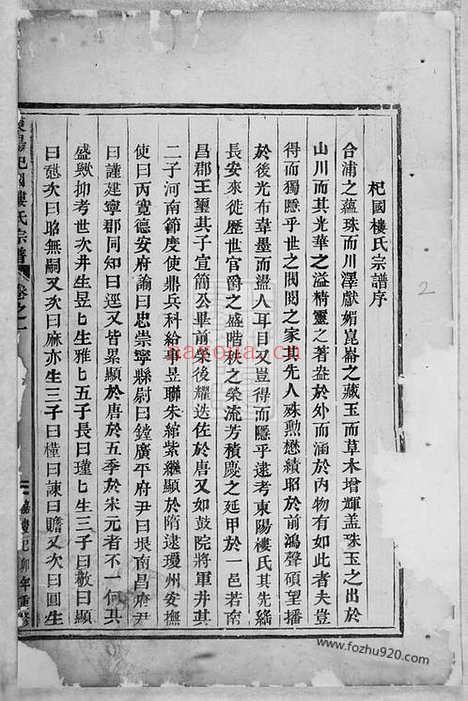 杞國樓氏宗譜序
合浦之蘊珠而川澤獻媚崑崙之藏玉而草木增輝蓋珠玉之出於
山川而其光華之溢精靈之著盎於外而涵於內物有如此者夫豈
得而獨隱乎世之閥閱之家其先人殊勲懋績昭於前鴻聲碩望播
於後光布韋墨而盪人耳目又豈得而隱乎逮考東陽樓氏其先繇
長安來徙歷世官爵之盛階秩之榮流芳積慶之延甲於一邑若南
昌郡王璽其子宣簡公畢前榮後耀迭佐於唐又如鼓院將軍井其
二子河南節度使鼎兵科給事昱聯朱綰紫繼顯於隋逮瓊州安撫
使曰丙寬德安府諭曰忠崇寧縣尉曰鏜廣平府尹曰垠南昌府尹
曰謹建寧郡同知曰逕又皆累顯於唐於五季於宋元者不一何其
盛歟抑考世次井生昱匕生雅匕五子長曰瑾匕生三子曰敬曰顯
曰憇次曰昭無嗣又次曰麻亦生三子曰槿曰諫曰贍又次曰圓生
東陽杞國樓氏宗譜
卷之一
2
nayona.cn
www.fozhu920.com